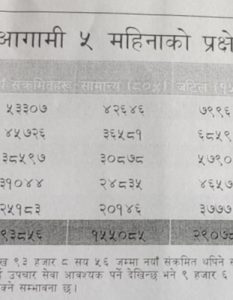 आगामी ५ महिनाको प्रक्षे
संक्रमितहरू सामान्य (८०%) जटिल (१५
५३३०७ ४२६४६ ७९९६
४५७२६ ३६५८१ ६८५९
३८५९७ ३०८७८ ५७९०
३१०४४ २४८३५ ४६५७
२५१८३ २०१४६ ३७७७
९३८५६ १५५०८५ २९०७८
ख ९३ हजार ८ सय ५६ जम्मा नयाँ संक्रमित थपिने स
उपचार सेवा आवश्यक पर्ने देखिन्छ भने ९ हजार ६
क्ने सम्भावना छ ।